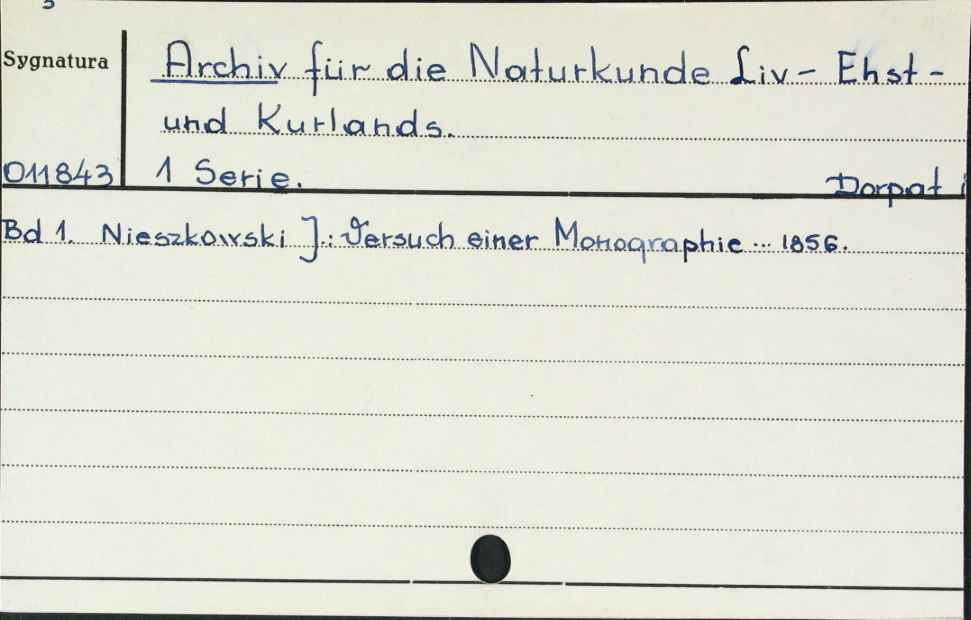 Sygnatura
Archiv für die Naturkunde Liv- Ehst-
und Kurlands.
011843
1 Serie.
Dorpat i
Bd 1. Nieszkowski J.: Versuch einer Monographie ... 1856.